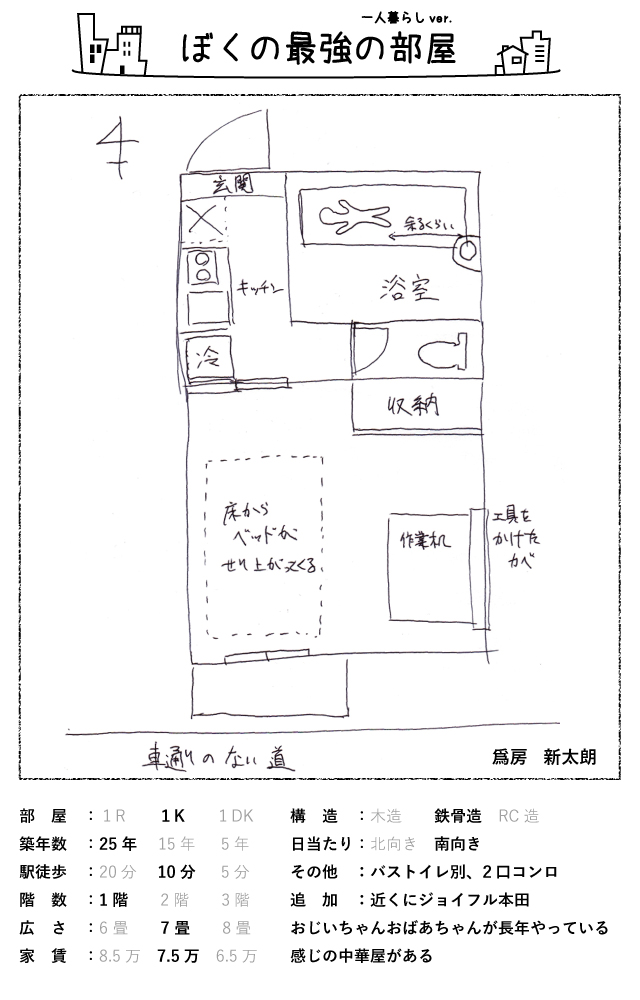 一人暮らし ver.
ぼくの最強の部屋
4
玄関
余るくらい
キッチン
浴室
冷
収納
床から
ベッドが
せり上がってくる
作業机
工具を
かけた
カベ
車通りのない道
爲房　新太朗
部　屋　：1R　1K　1DK
築年数　：25年　15年　5年
駅徒歩　：20分　10分　5分
階　数　：1階　2階　3階
広　さ　：6畳　7畳　8畳
家　賃　：8.5万　7.5万　6.5万
構　造　：木造　鉄骨造　RC造
日当たり：北向き　南向き
その他　：バストイレ別、2口コンロ
追　加　：近くにジョイフル本田
おじいちゃんおばあちゃんが長年やっている
感じの中華屋がある